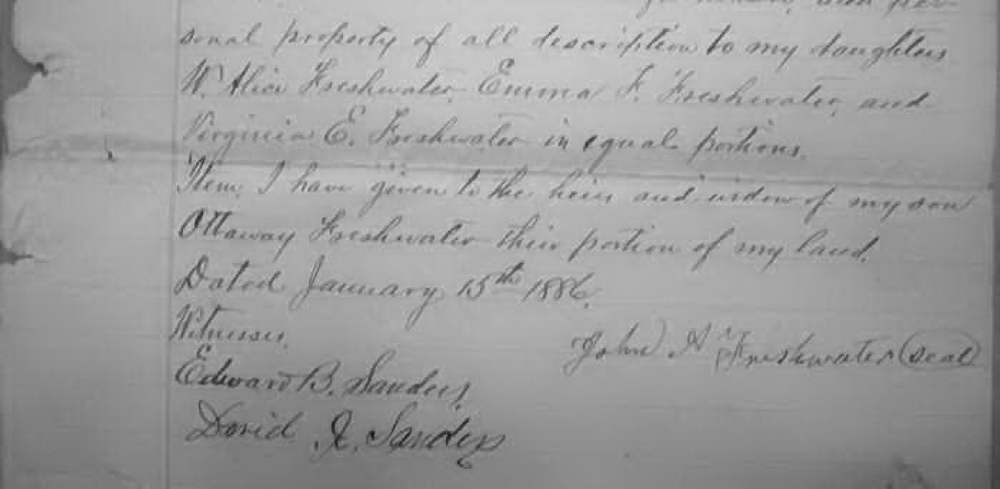 and per-
sonal property of all description to my daughters
W. Alice Freshwater, Emma F. Freshwater, and
Virginia E. Freshwater in equal portions.
Item, I have given to the heirs and widow of my son
Ottaway Freshwater their portion of my land.
Dated January 15th 1886.
Witnesses,
John A Freshwater (seal)
Edward B. Sanders,
David Sanders